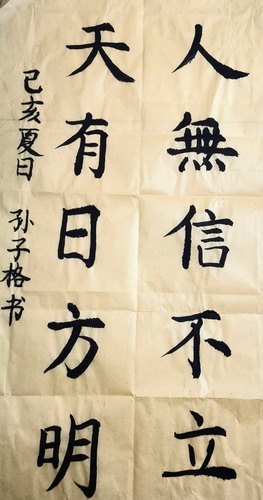 人無信不立
天有日方明
己亥夏日 孙子格书